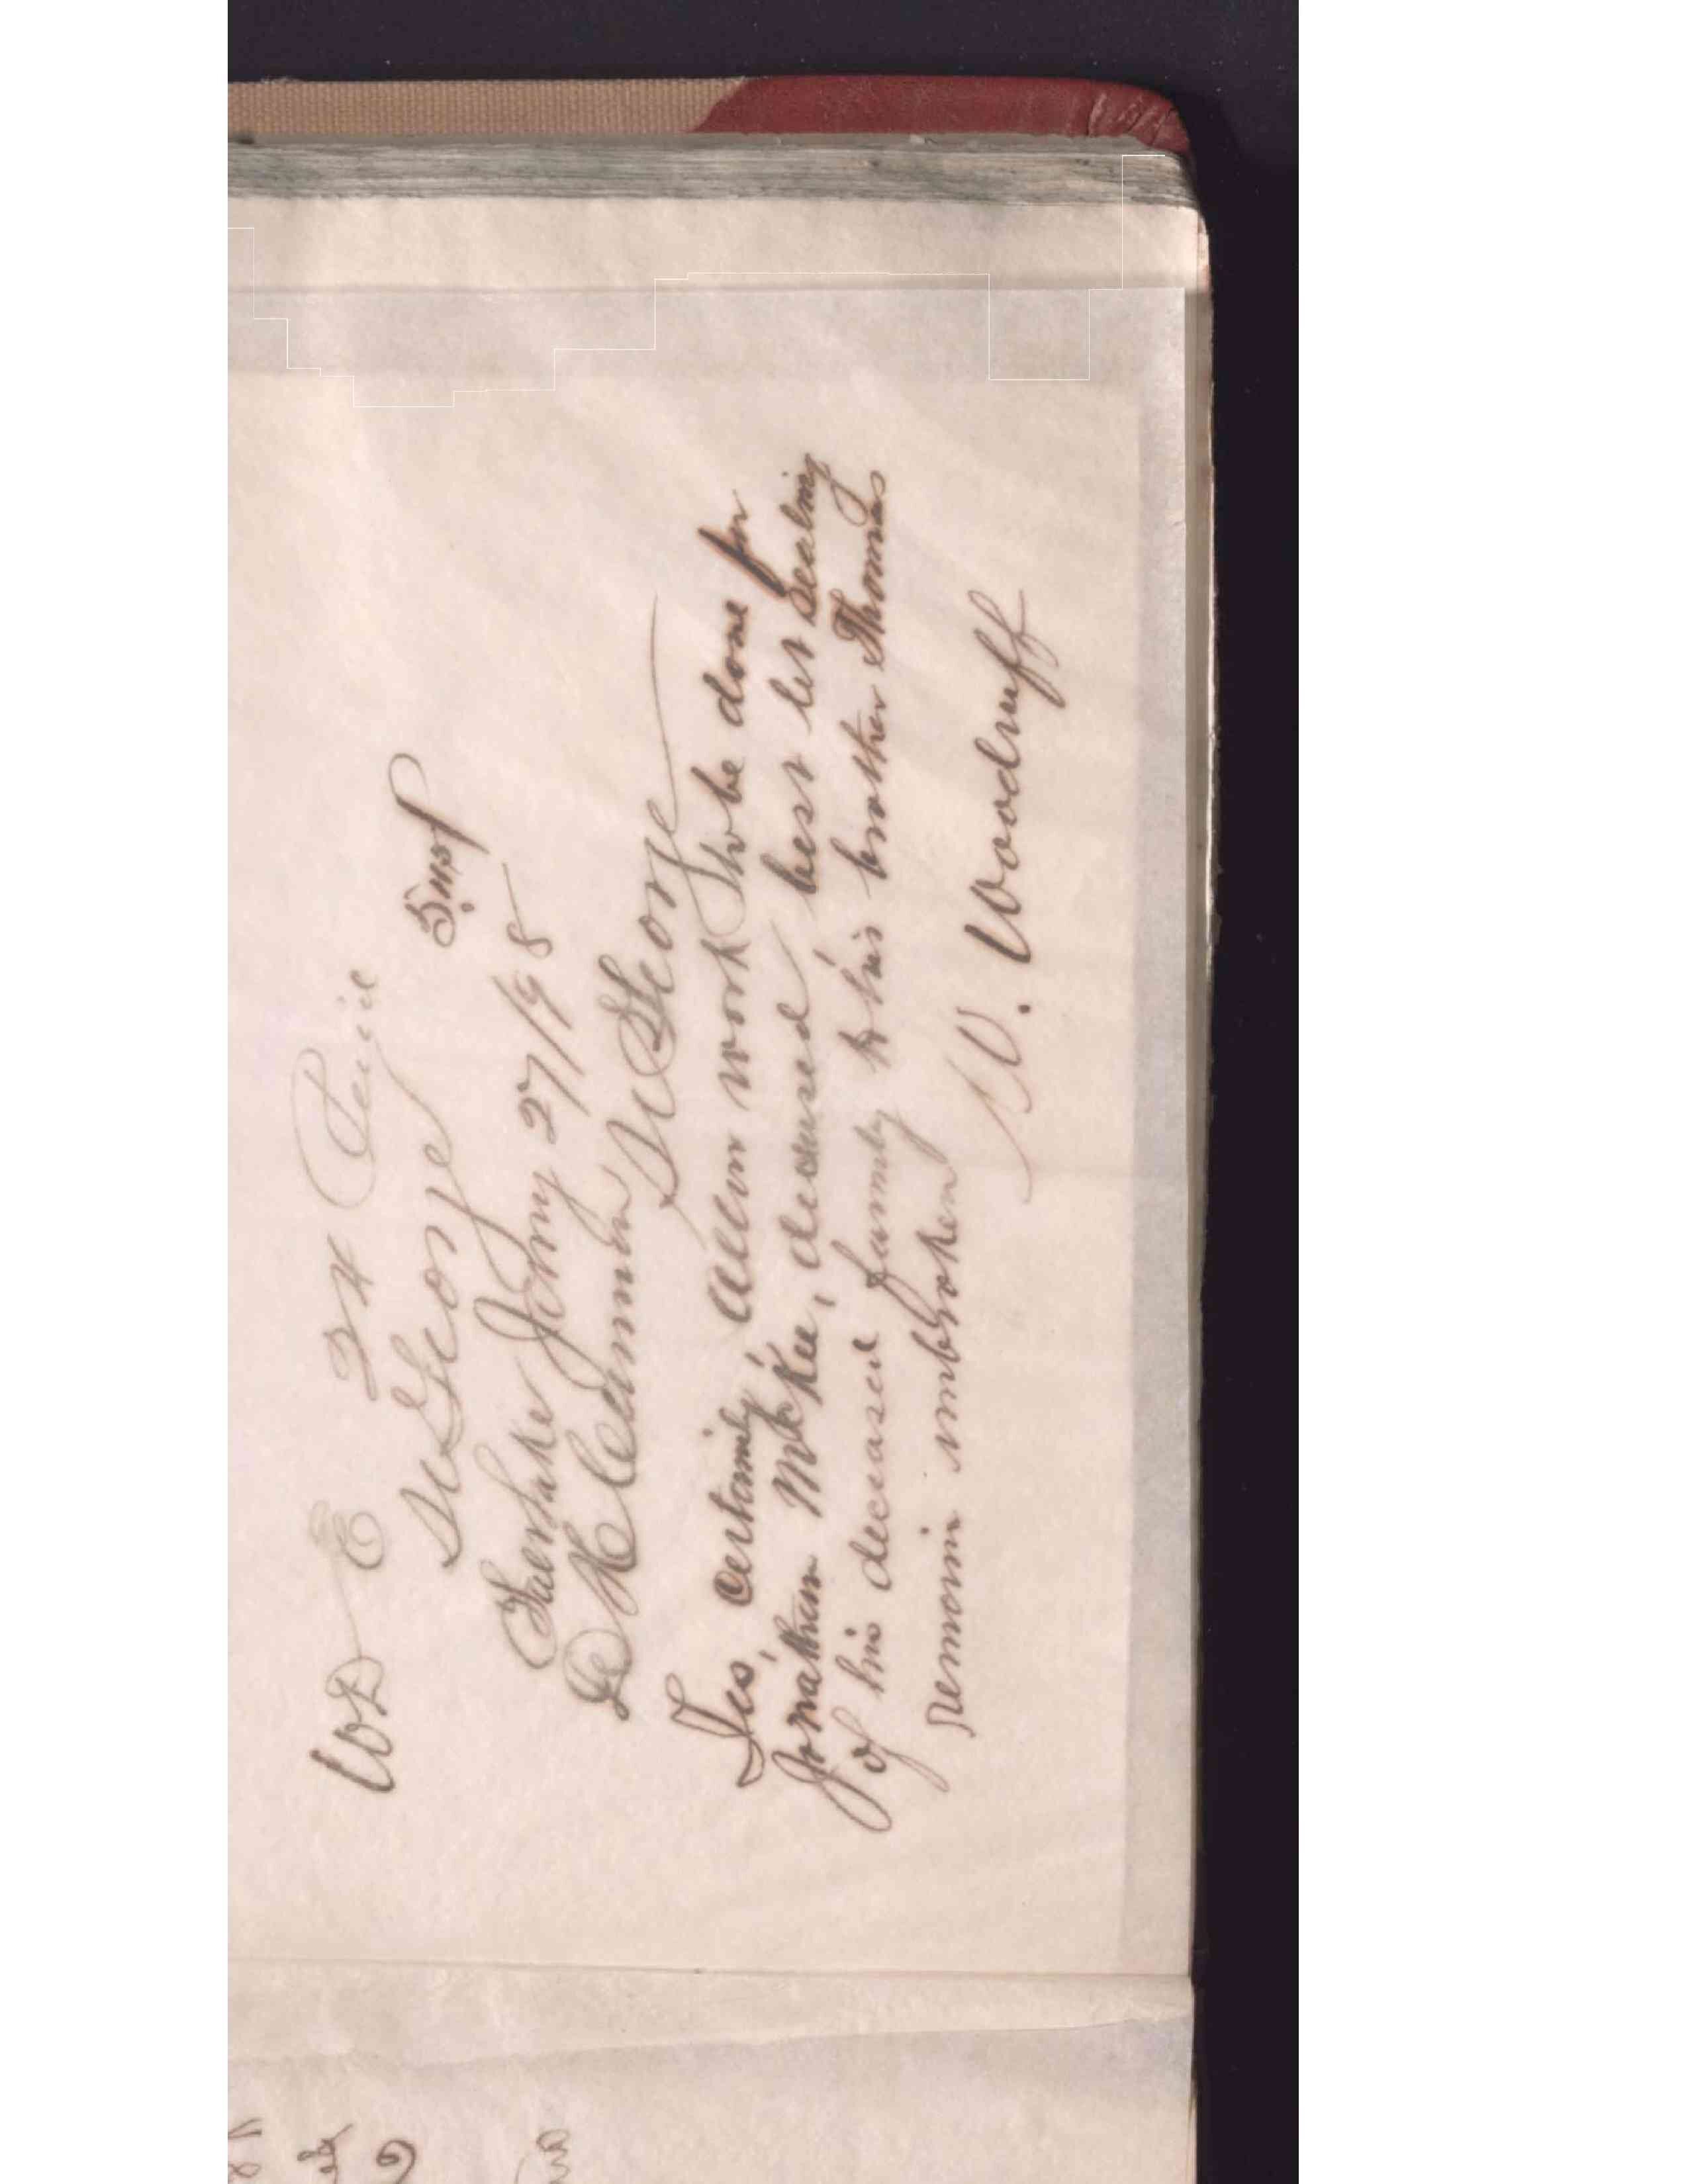 WD E 34 Paid
St George
Saltlake Jany 27/98
D H Cannon
St George
Yes, certainly, allow work to be done for
Jonathan McKee, deceased, best let sealing
of his deceased family to his brother Thomas
remain unbroken
W. Woodruff